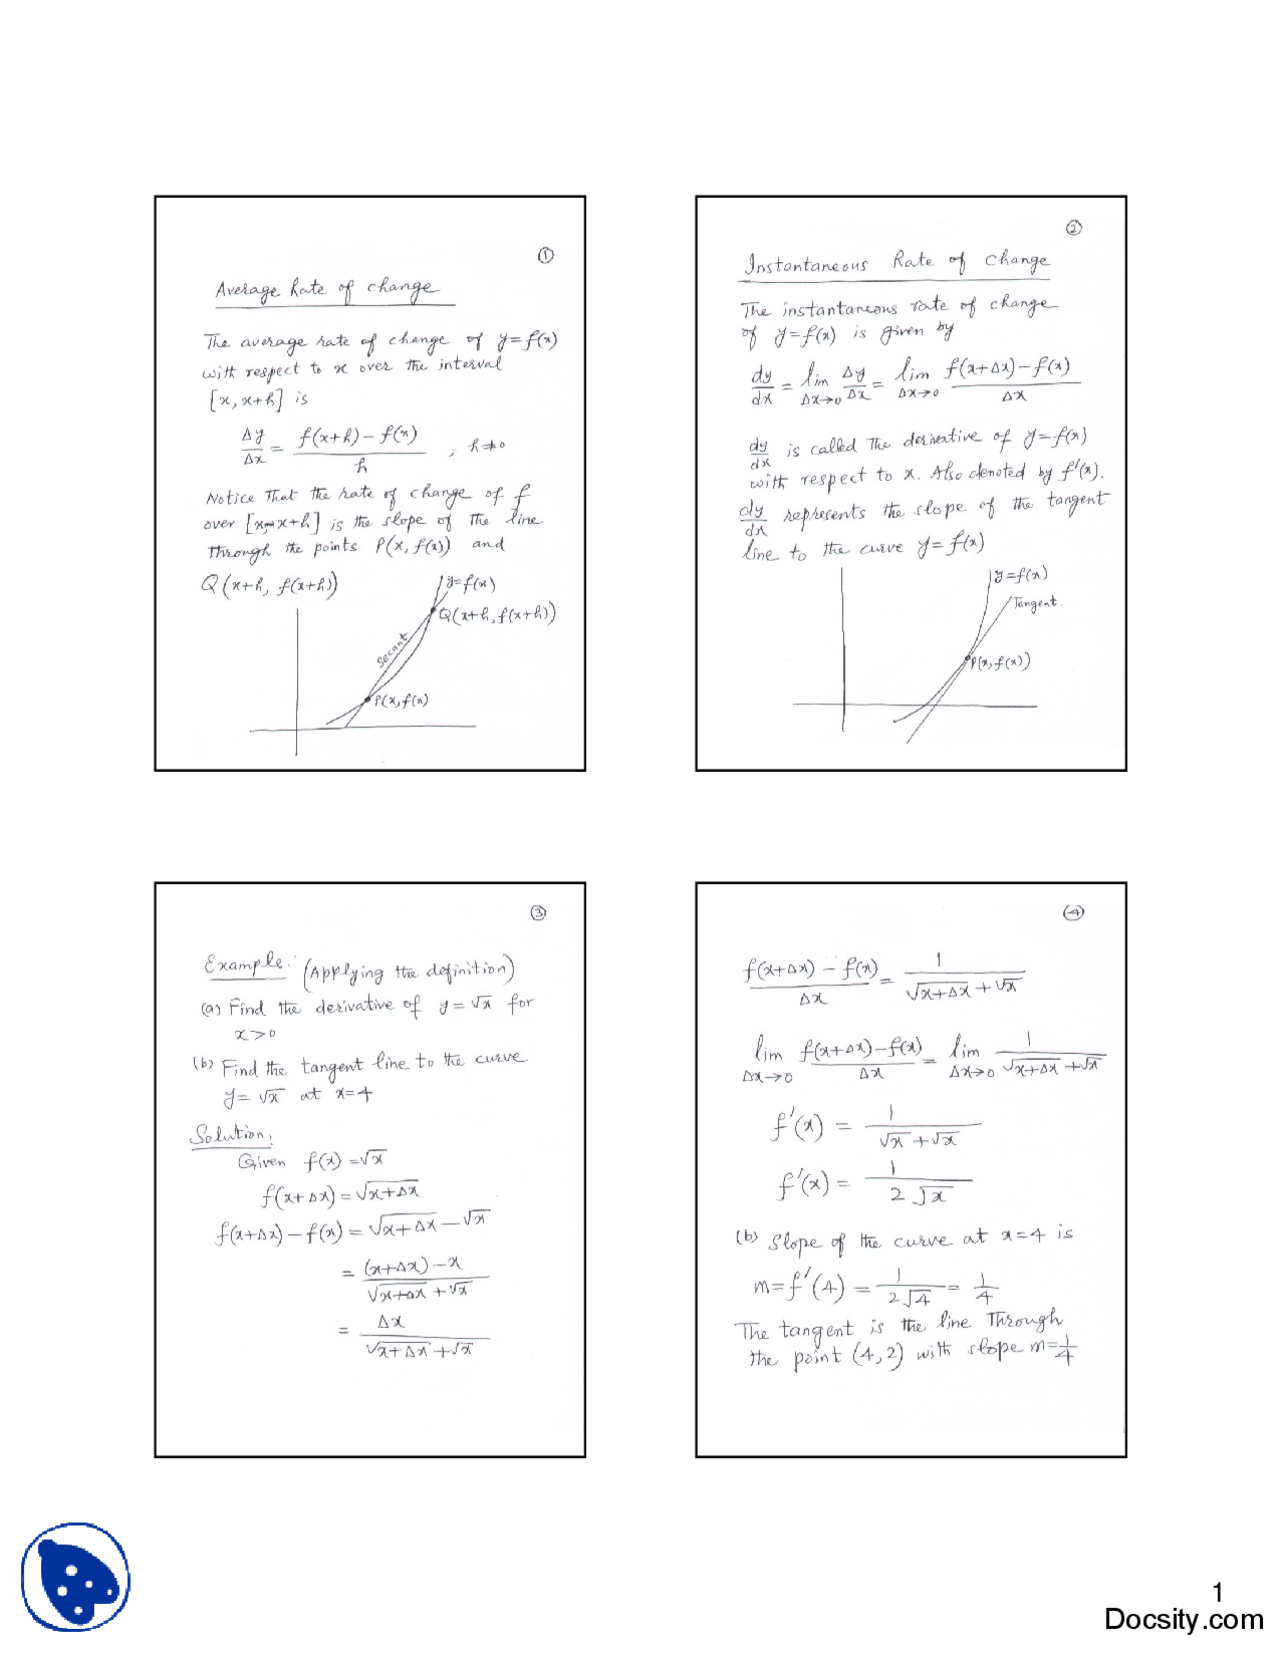 ①
Average Rate of change
The average rate of change of y=f(x)
with respect to x over the interval
[x, x+h] is
Δy/Δx = (f(x+h) – f(x))/h , h≠0
Notice that the rate of change of f
over [x, x+h] is the slope of the line
through the points P(x, f(x)) and
Q(x+h, f(x+h))
y=f(x)
Q(x+h, f(x+h))
Secant
P(x, f(x)
②
Instantaneous Rate of change
The instantaneous rate of change
of y=f(x) is given by
dy/dx = lim Δx→0 Δy/Δx = lim Δx→0 (f(x+Δx)–f(x))/Δx
dy/dx is called the derivative of y=f(x)
with respect to x. Also denoted by f'(x).
dy/dx represents the slope of the tangent
line to the curve y=f(x)
y=f(x)
Tangent.
P(x, f(x))
③
Example: (Applying the definition)
(a) Find the derivative of y=√x for
x>0
(b) Find the tangent line to the curve
y=√x at x=4
Solution:
Given f(x)=√x
f(x+Δx)=√(x+Δx)
f(x+Δx)–f(x)=√(x+Δx)–√x
= ((x+Δx)–x)/(√(x+Δx)+√x)
= Δx/(√(x+Δx)+√x)
④
(f(x+Δx)–f(x))/Δx = 1/(√(x+Δx)+√x)
lim Δx→0 (f(x+Δx)–f(x))/Δx = lim Δx→0 1/(√(x+Δx)+√x)
f'(x) = 1/(√x+√x)
f'(x) = 1/(2√x)
(b) Slope of the curve at x=4 is
m=f'(4) = 1/(2√4) = 1/4
The tangent is the line Through
the point (4,2) with slope m=1/4
1
Docsity.com